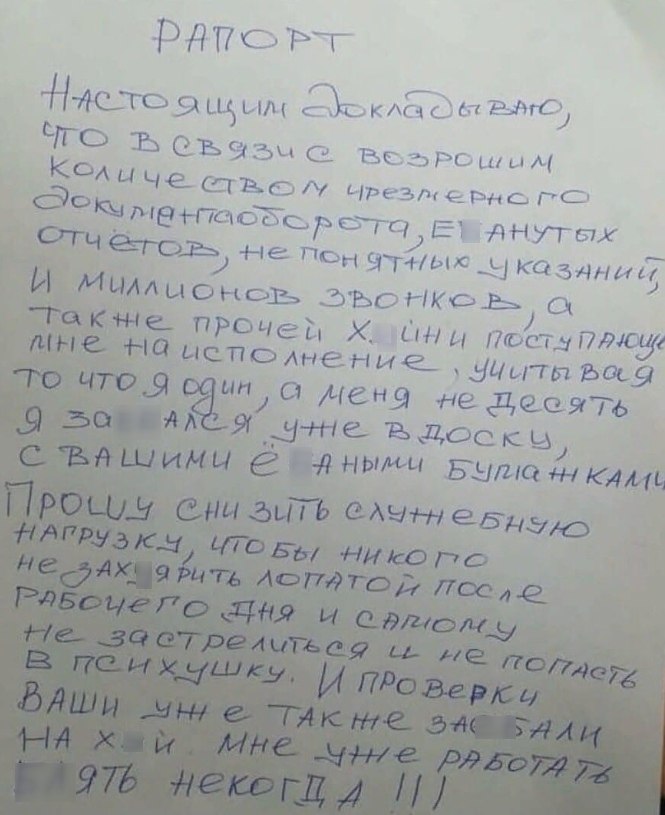 РАПОРТ
Настоящим докладываю,
что в связи с возрошим
количеством чрезмерного
документаоборота, Е анутых
отчётов, не понятных указаний,
и миллионов звонков, а
также прочей х. йни поступающе
мне на исполнение, учитывая
то что я один, а меня не десять
я за ался уже в доску,
с вашими ё аными бумажками
Прошу снизить служебную
нагрузку, чтобы никого
не зах ярить лопатой после
рабочего дня и самому
не застрелиться и не попасть
в психушку. И проверки
ваши уже также за бали
на х й. мне уже работать
ять некогда!!!